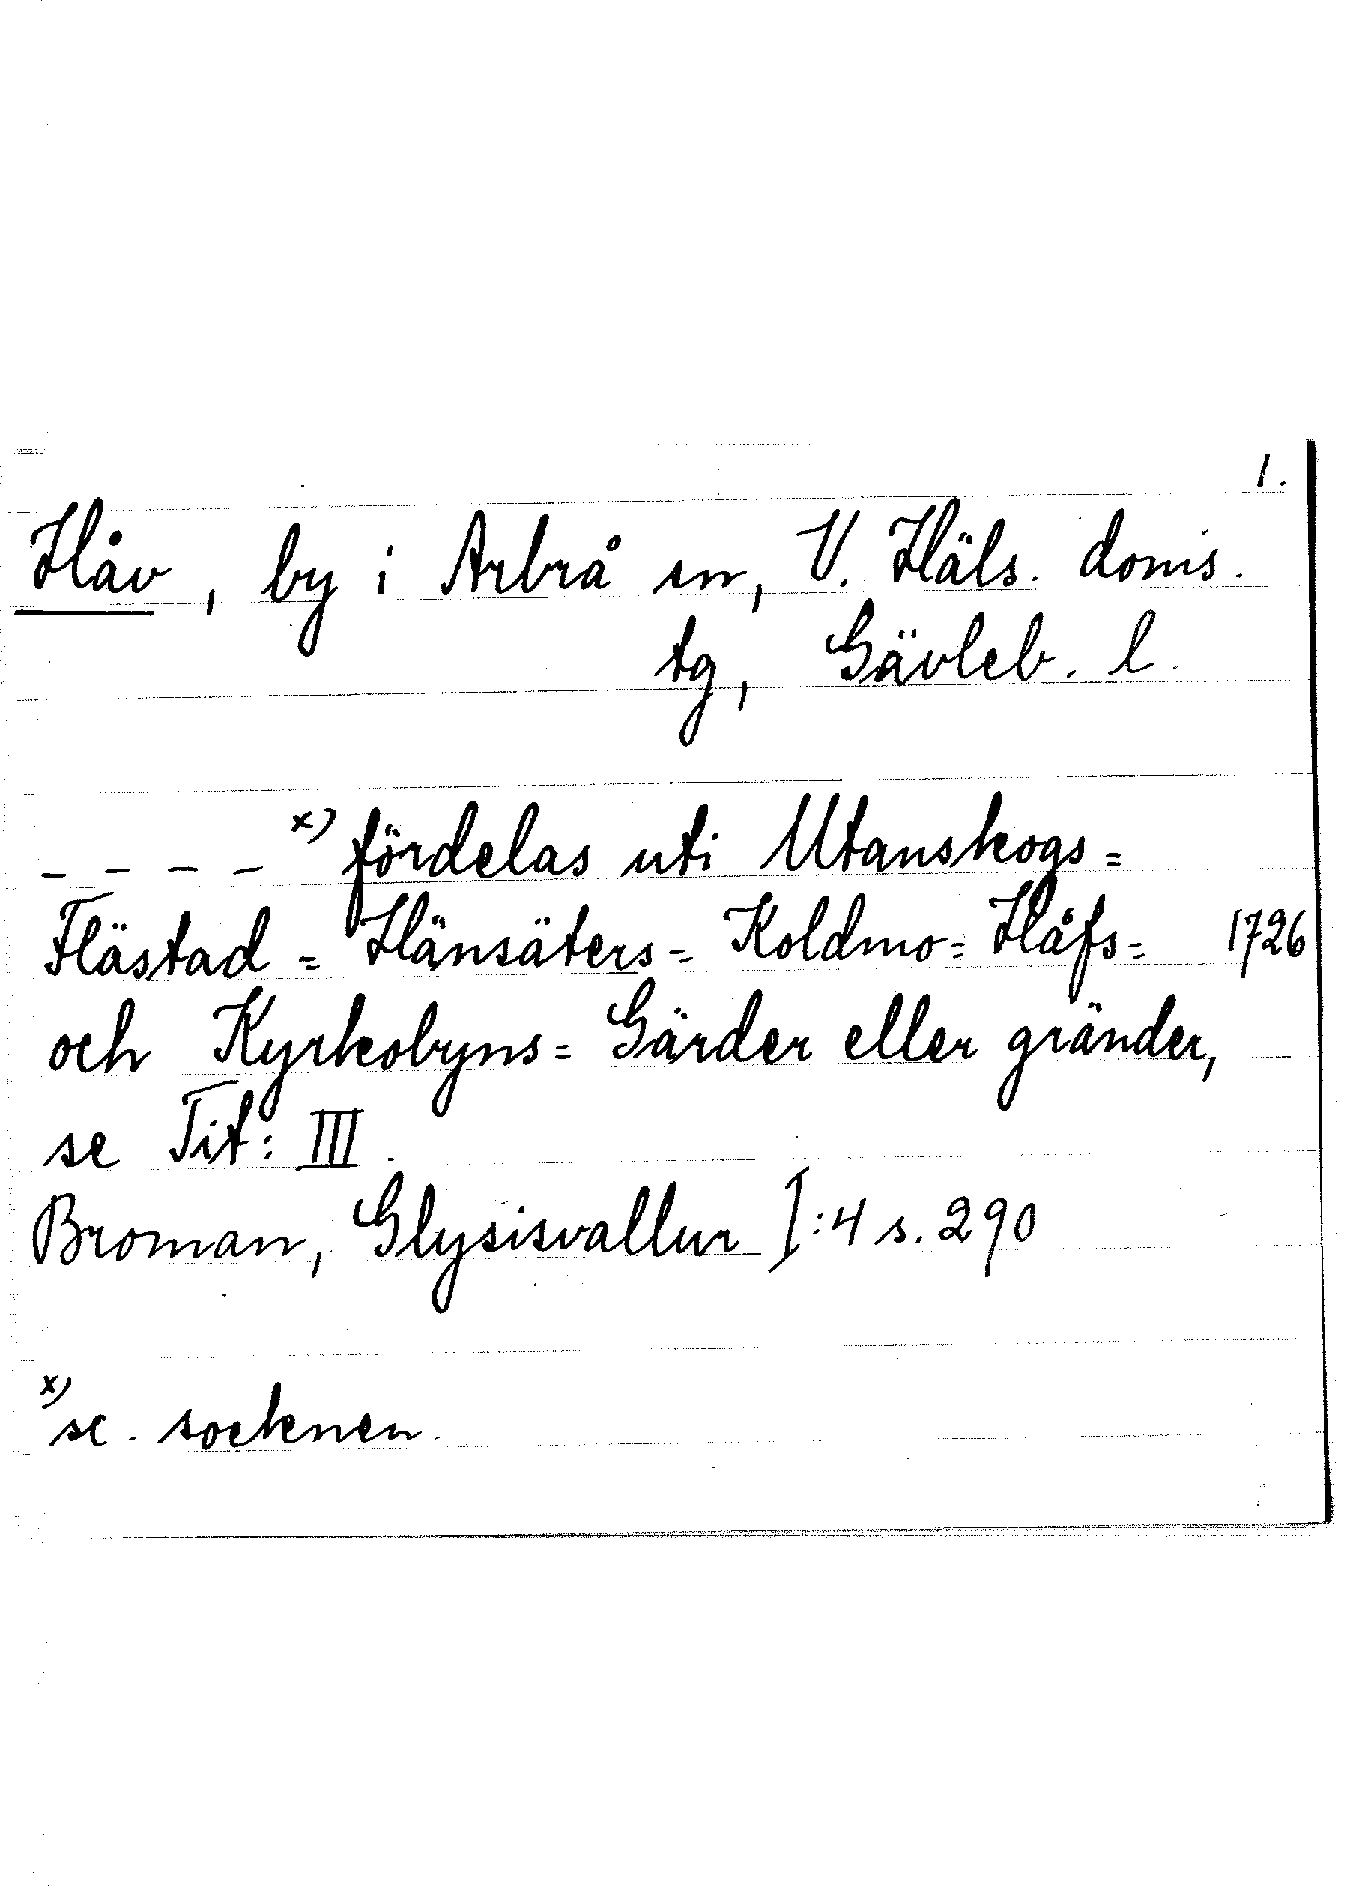 1.
Håv, by i Arbrå sn, V. Häls. doms.
tg, Gävleb. l.
– – – – x) fördelas uti Utanskogs=
Flästad = Hänsäters= Koldmo= Håfs= 1726
och Kyrkobyns= Gärder eller gränder,
se Tit: III.
Broman, Glysisvallur I:4 s. 290
x) sc. socknen.